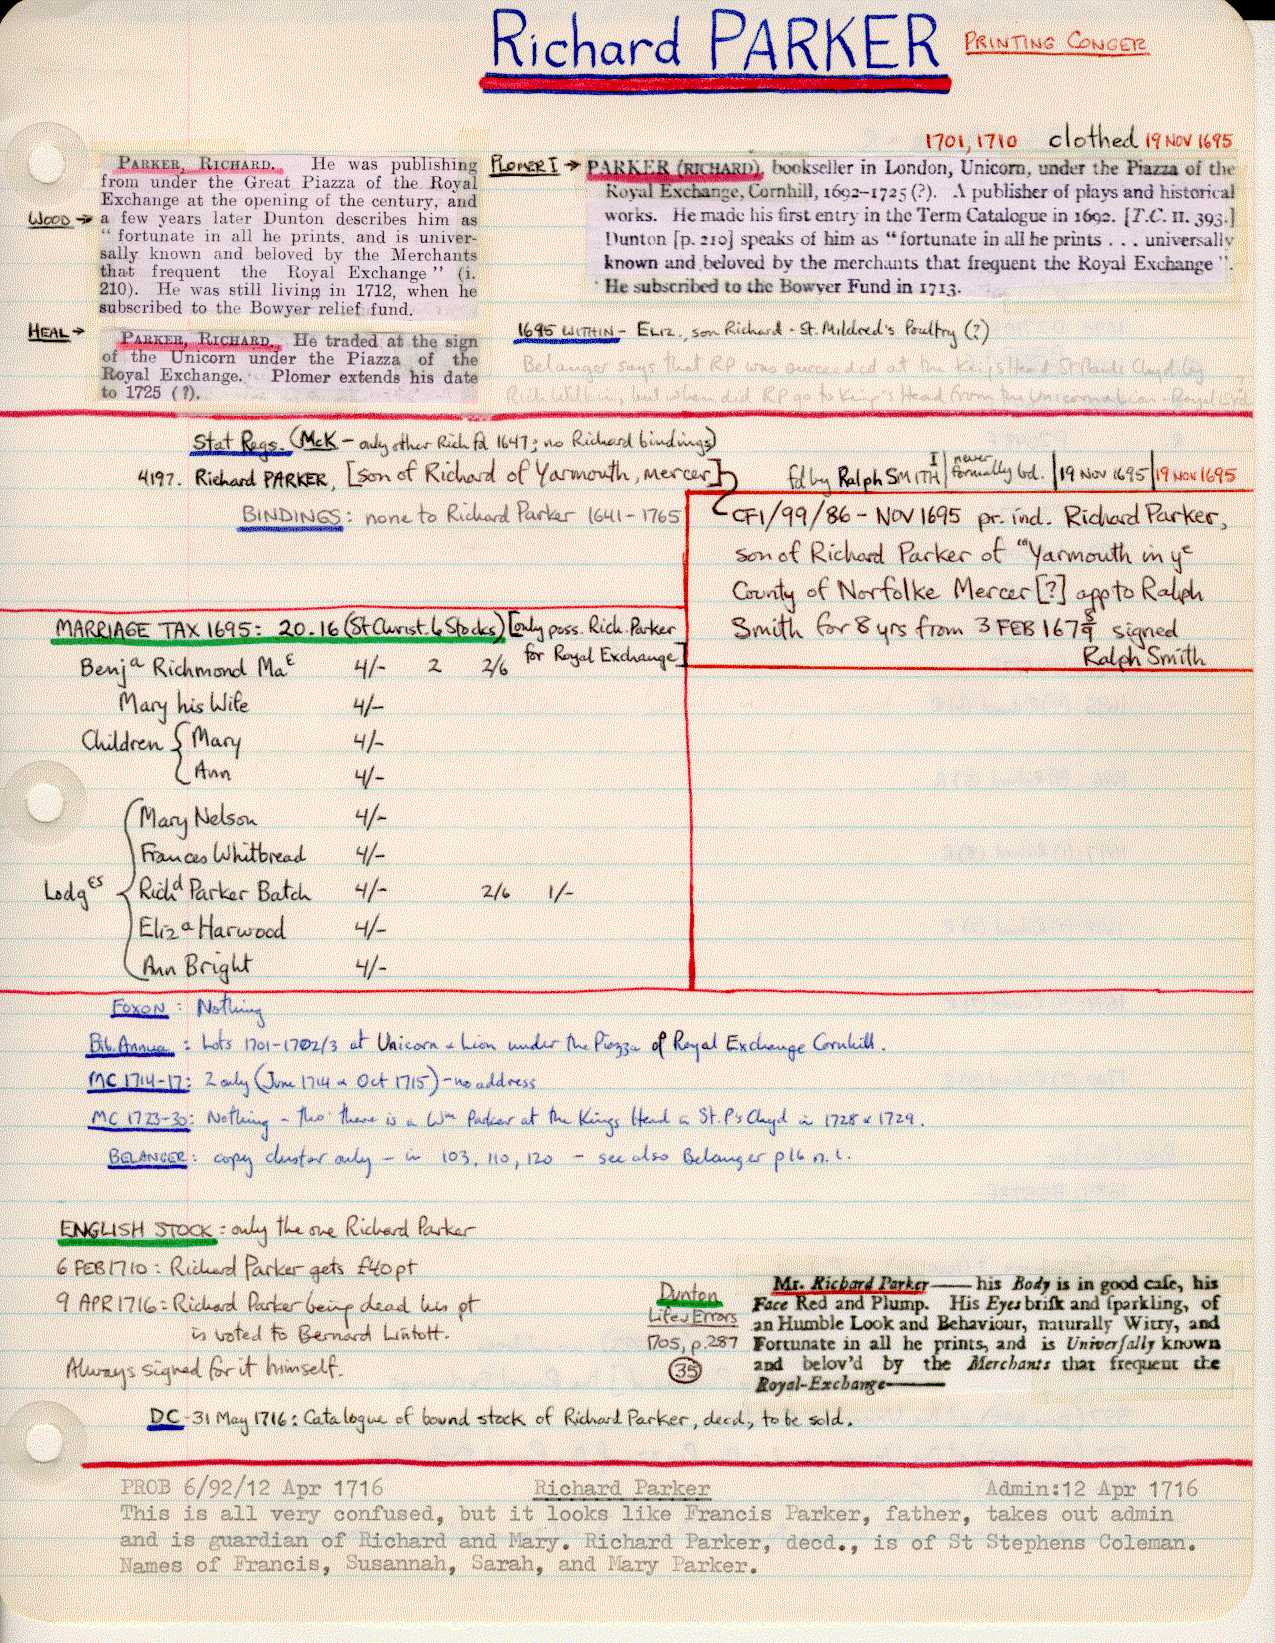 Richard PARKER PRINTING CONGER
1701, 1710 clothed 19 NOV 1695
WOOD →
PARKER, RICHARD. He was publishing
from under the Great Piazza of the Royal
Exchange at the opening of the century, and
a few years later Dunton describes him as
“fortunate in all he prints, and is univer-
sally known and beloved by the Merchants
that frequent the Royal Exchange” (i.
210). He was still living in 1712, when he
subscribed to the Bowyer relief fund.
HEAL →
PARKER, RICHARD. He traded at the sign
of the Unicorn under the Piazza of the
Royal Exchange. Plomer extends his date
to 1725 (?).
PLOMER I →
PARKER (RICHARD), bookseller in London, Unicorn, under the Piazza of the
Royal Exchange, Cornhill, 1692-1725 (?). A publisher of plays and historical
works. He made his first entry in the Term Catalogue in 1692. [T.C. II. 393.]
Dunton [p. 210] speaks of him as “fortunate in all he prints . . . universally
known and beloved by the merchants that frequent the Royal Exchange”.
He subscribed to the Bowyer Fund in 1713.
1695 WITHIN - ELIZ., son Richard - St. Mildred's Poultry (?)
Belanger says that RP was succeeded at the Kings Head St Pauls Chyd by
Rich Wilkin, but when did RP go to King's Head from the Unicorn - Royal
Stat Regs. (McK - only other Rich fd 1647; no Richard bindings)
4197. Richard PARKER, [son of Richard of Yarmouth, mercer] fd by Ralph SMITH I | never formally bd. | 19 NOV 1695 | 19 NOV 1695
BINDINGS: none to Richard Parker 1641-1765
CF1/99/86 - NOV 1695 pr. ind. Richard Parker,
son of Richard Parker of "Yarmouth in yᵉ
County of Norfolke Mercer[?] app to Ralph
Smith for 8 yrs from 3 FEB 167 8/9 signed
Ralph Smith
MARRIAGE TAX 1695: 20.16 (St Christ. 6 Stocks) [only poss. Rich. Parker
for Royal Exchange]
Benjᵃ Richmond Maᵉ 4/- 2 2/6
Mary his Wife 4/-
Children { Mary 4/-
Ann 4/-
Mary Nelson 4/-
Frances Whitbread 4/-
Lodgᵉˢ { Richᵈ Parker Batch 4/- 2/6 1/-
Elizᵃ Harwood 4/-
Ann Bright 4/-
FOXON: Nothing
Bib. Annua: Lots 1701-1702/3 at Unicorn & Lion under the Piazza of Royal Exchange Cornhill.
MC 1714-17: 2 only (June 1714 & Oct 1715) - no address
MC 1723-30: Nothing - tho' there is a Wᵐ Parker at the Kings Head in St. P's Chyd in 1728 & 1729.
BELANGER: copy cluster only - in 103, 110, 120 - see also Belanger p16 n.1.
ENGLISH STOCK: only the one Richard Parker
6 FEB 1710: Richard Parker gets £40 pt
9 APR 1716: Richard Parker being dead his pt
is voted to Bernard Lintott.
Always signed for it himself.
Dunton
Life & Errors
1705, p.287
35
Mr. Richard Parker—— his Body is in good case, his
Face Red and Plump. His Eyes brisk and sparkling, of
an Humble Look and Behaviour, naturally Witty, and
Fortunate in all he prints, and is Universally known
and belov'd by the Merchants that frequent the
Royal-Exchange——
DC - 31 May 1716: Catalogue of bound stock of Richard Parker, decd, to be sold.
PROB 6/92/12 Apr 1716 Richard Parker Admin:12 Apr 1716
This is all very confused, but it looks like Francis Parker, father, takes out admin
and is guardian of Richard and Mary. Richard Parker, decd., is of St Stephens Coleman.
Names of Francis, Susannah, Sarah, and Mary Parker.